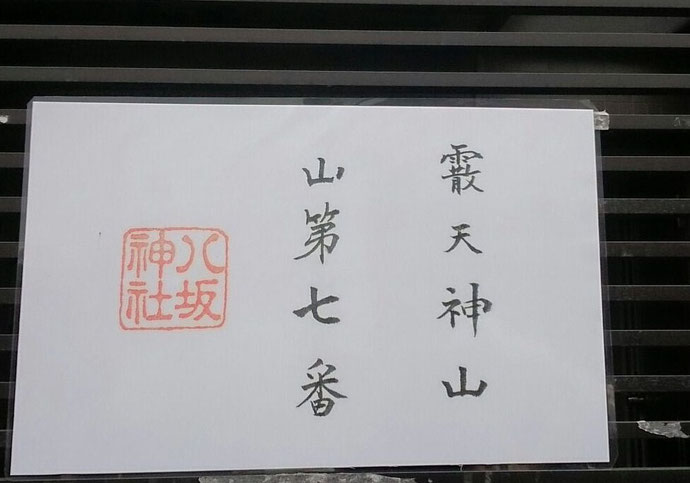 霰天神山
山第七番
八坂
神社